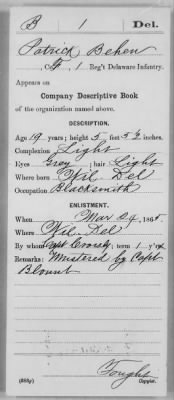 B 1 Del.
Patrick Behen
Co. F, 1 Reg't Delaware Infantry.
Appears on
Company Descriptive Book
of the organization named above.
DESCRIPTION.
Age 19 years; height 5 feet 5½ inches.
Complexion Light
Eyes Grey; hair Light
Where born Wil. Del
Occupation Blacksmith
ENLISTMENT.
When Mar 24, 1865.
Where Wil. Del
By whom Capt ; term 1 y'rs
Remarks: Mustered by Capt
Blount
(383g) Copyist.